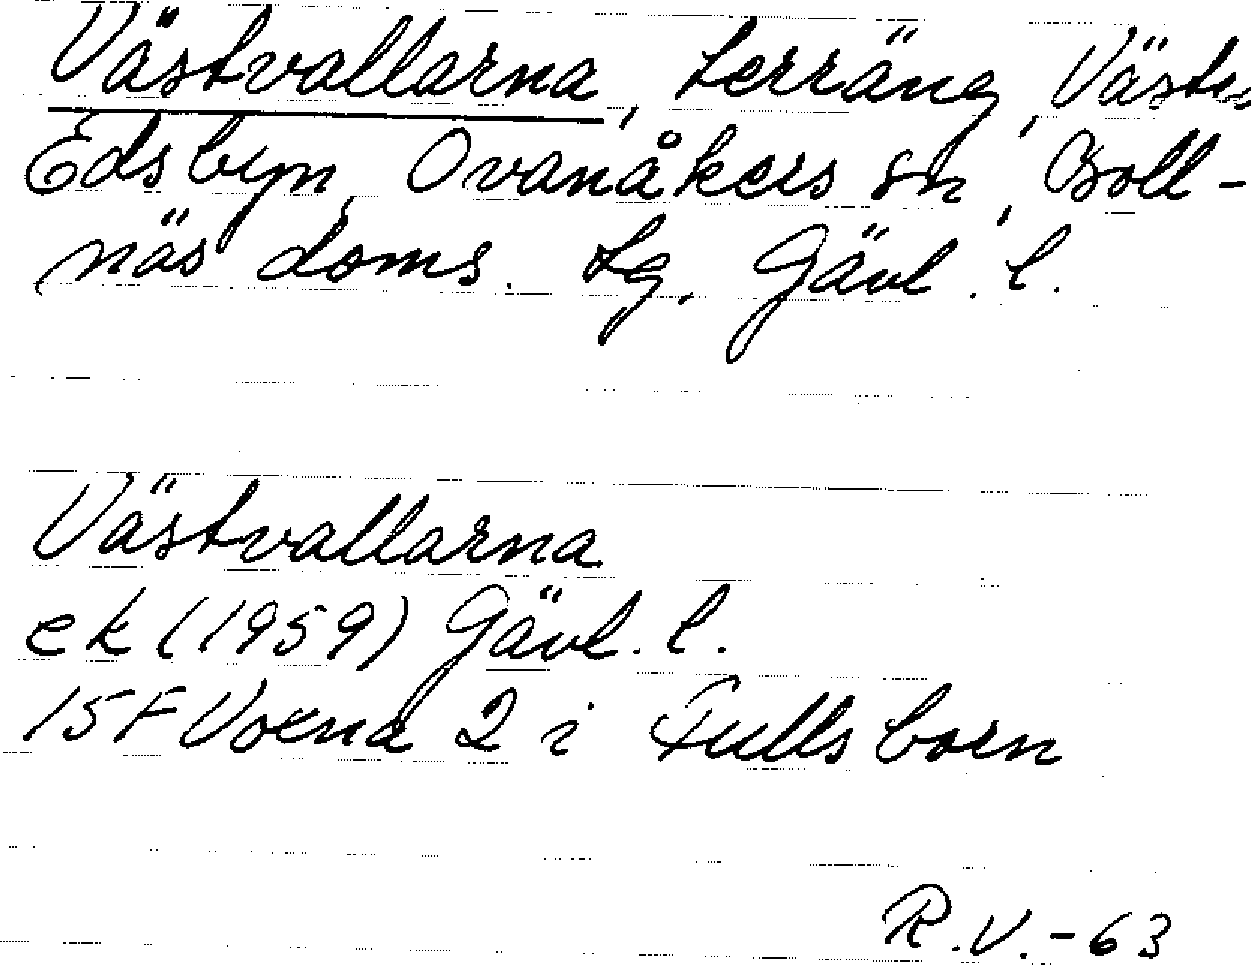 Västvallarna, terräng, Västra
Edsbyn, Ovanåkers sn, Boll-
näs doms. lg, Gävl. l.
Västvallarna
ek (1959) Gävl. l.
15F Voxna 2 i Fullsborn
R.V.-63